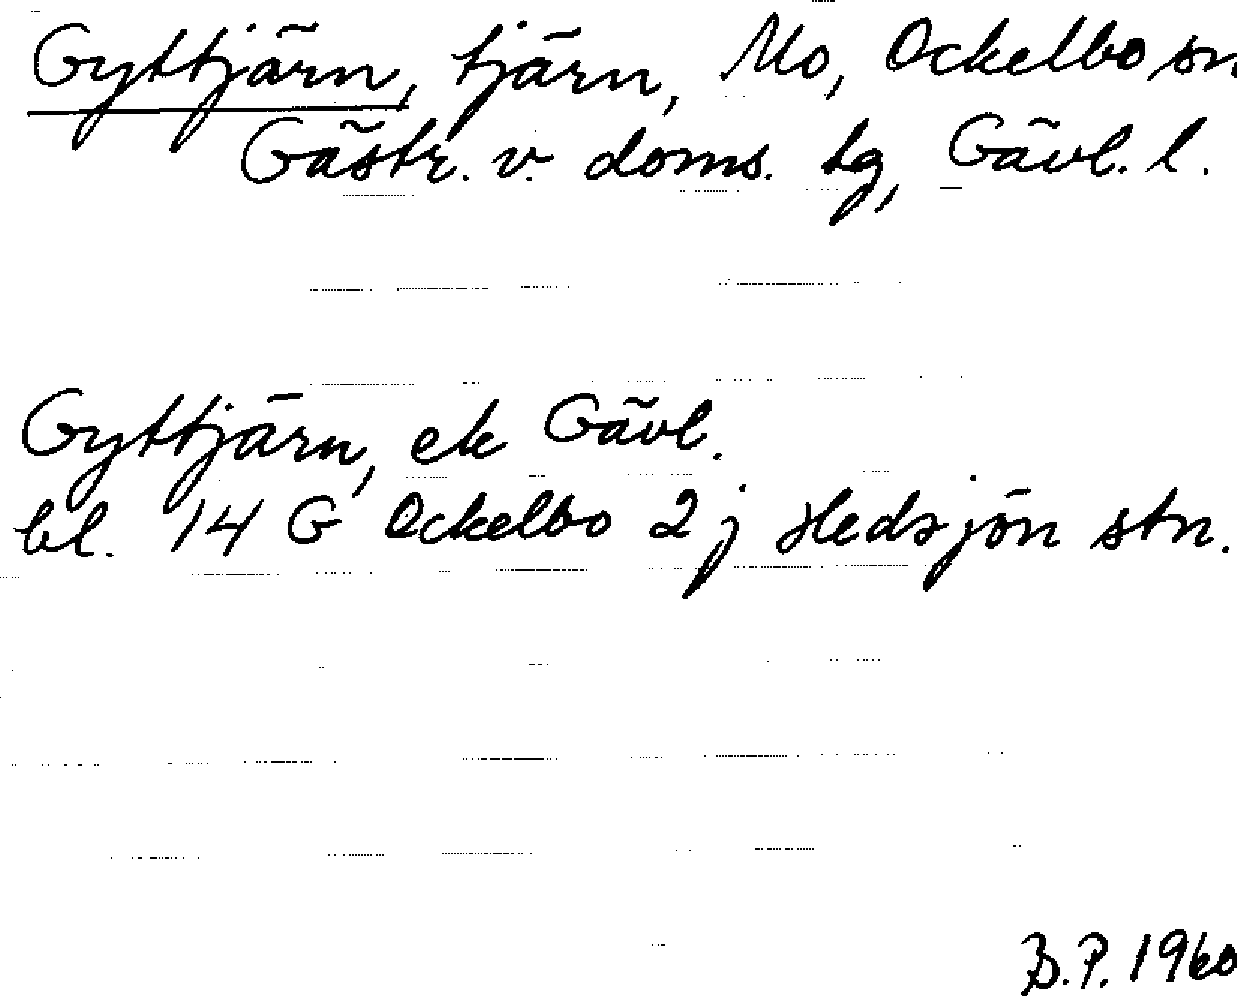 Gyttjärn, tjärn, Mo, Ockelbo sn
Gästr. v. doms. tg, Gävl. l.
Gyttjärn, ek Gävl.
bl. 14 G Ockelbo 2 j Hedsjön stn.
B.P. 1960